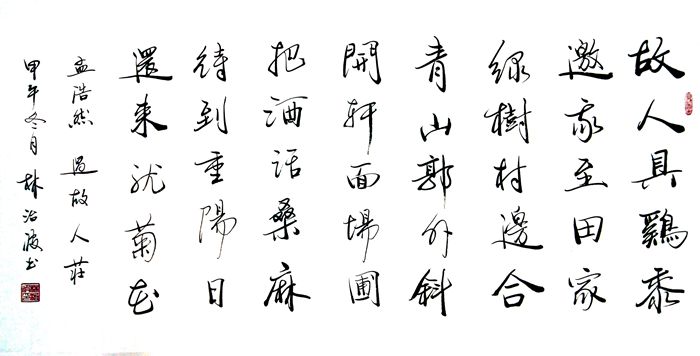 故人具鷄黍
邀我至田家
綠樹村邊合
青山郭外斜
開軒面場圃
把酒話桑麻
待到重陽日
還來就菊花
孟浩然 過故人莊
甲午冬月 林治波书